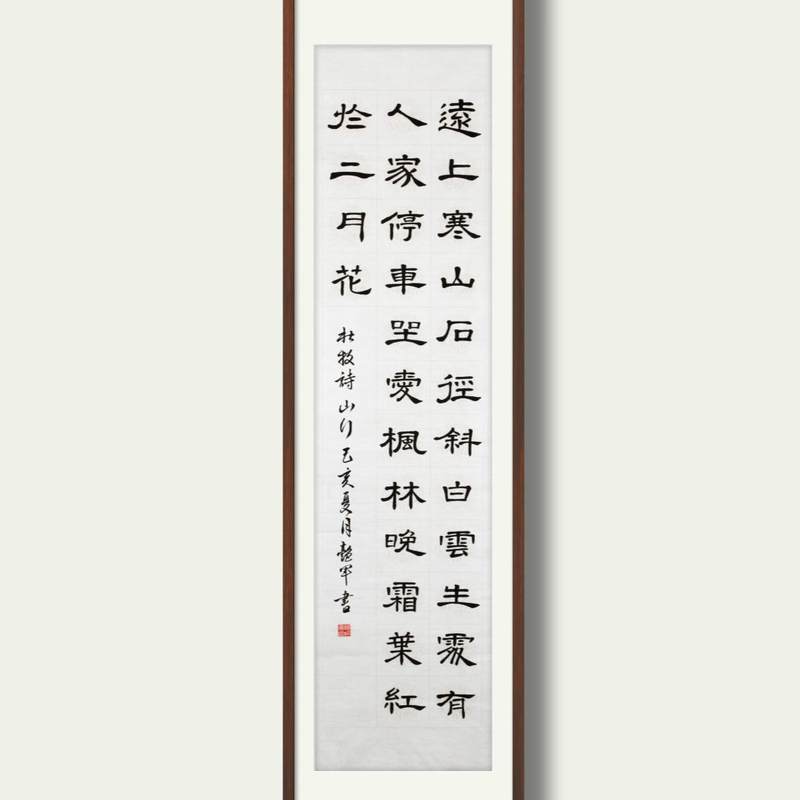 遠上寒山石徑斜白雲生處有
人家停車坐愛楓林晚霜葉紅
於二月花
杜牧詩山行己亥夏月軍書